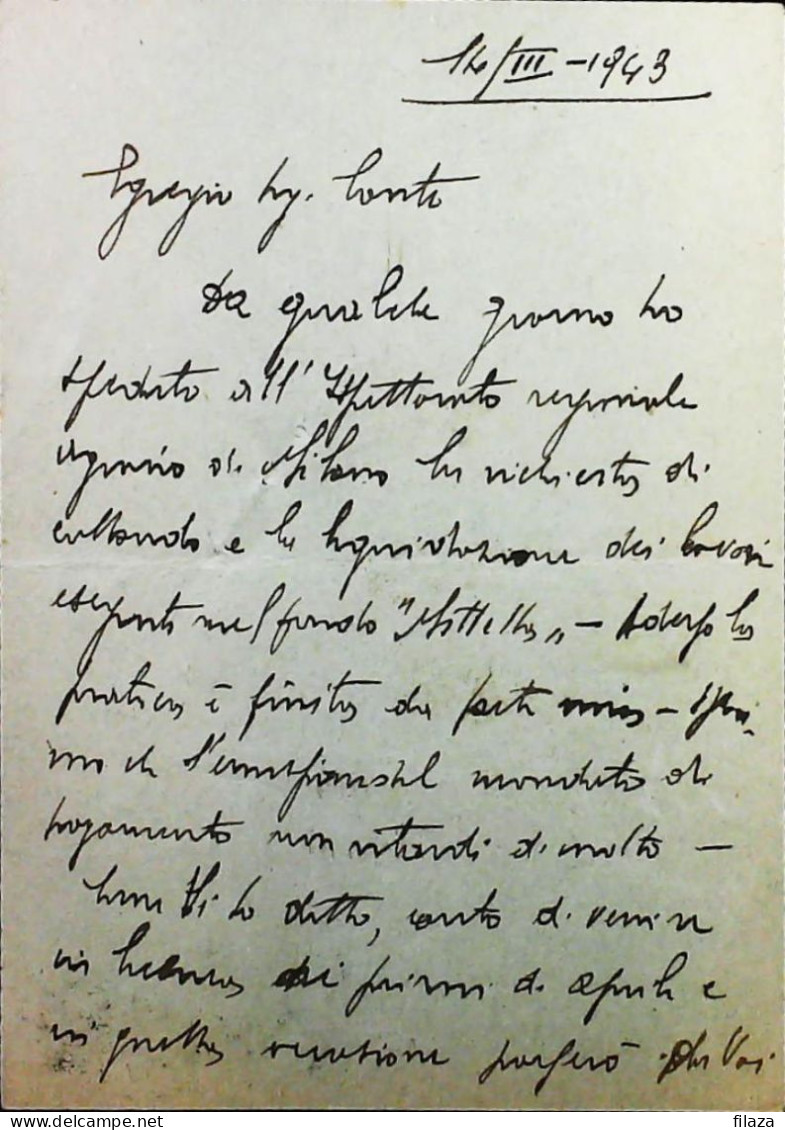 14/III-1943
Egregio Sig. Conte
Da qualche giorno ho
spedito all'Ispettorato regionale
agrario di Milano la richiesta di
collaudo e la liquidazione dei lavori
eseguiti nel fondo "Mottella" - Adesso la
pratica è finita da parte mia - Spe-
ro che l'emissione del mandato di
pagamento non ritardi di molto -
Come Vi ho detto, conto di venire
in licenza ai primi di aprile e
in quella occasione passerò da Voi
filaza